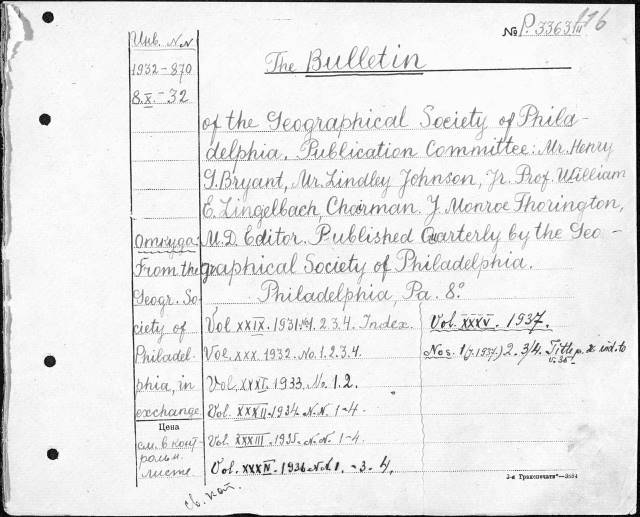 № P. 3363 III 116
The Bulletin
of the Geographical Society of Phila-
delphia. Publication Committee: Mr. Henry
G. Bryant, Mr. Lindley Johnson, Jr. Prof. William
E. Lingelbach, Chairman. J. Monroe Thorington,
M.D. Editor. Published Quarterly by the Geo-
graphical Society of Philadelphia.
Philadelphia, Pa. 8°.
Инв. N N
1932-870
8.X.-32
Откуда:
From the
Geogr. So-
ciety of
Philadel-
phia, in
exchange
Цена
см. в конт-
рольн.
листе.
Vol XXIX. 1931. №1. 2. 3. 4. Index.
Vol. XXX. 1932. No. 1. 2. 3. 4.
Vol. XXXI. 1933. No. 1. 2.
Vol. XXXII. 1934. N. N. 1-4.
Vol. XXXIII. 1935. N. N. 1-4.
Vol. XXXIV. 1936 N. N. 1. - 3. 4.
Vol. XXXV. 1937.
Nos. 1 (J. 1937.) 2. 3/4. Title p. & ind. to
v. 35
св. кат.
3-я Транспечати"—3584